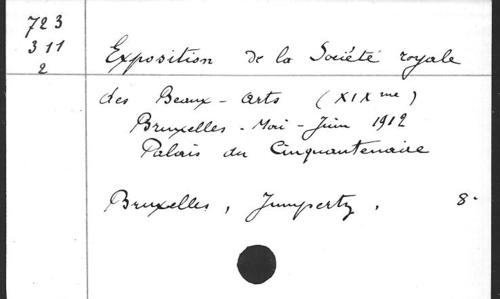 723
311
2
Exposition de la Société royale
des Beaux-Arts (XIXme)
Bruxelles - Mai - Juin 1912
Palais du Cinquantenaire
Bruxelles, Jumpertz, 8°